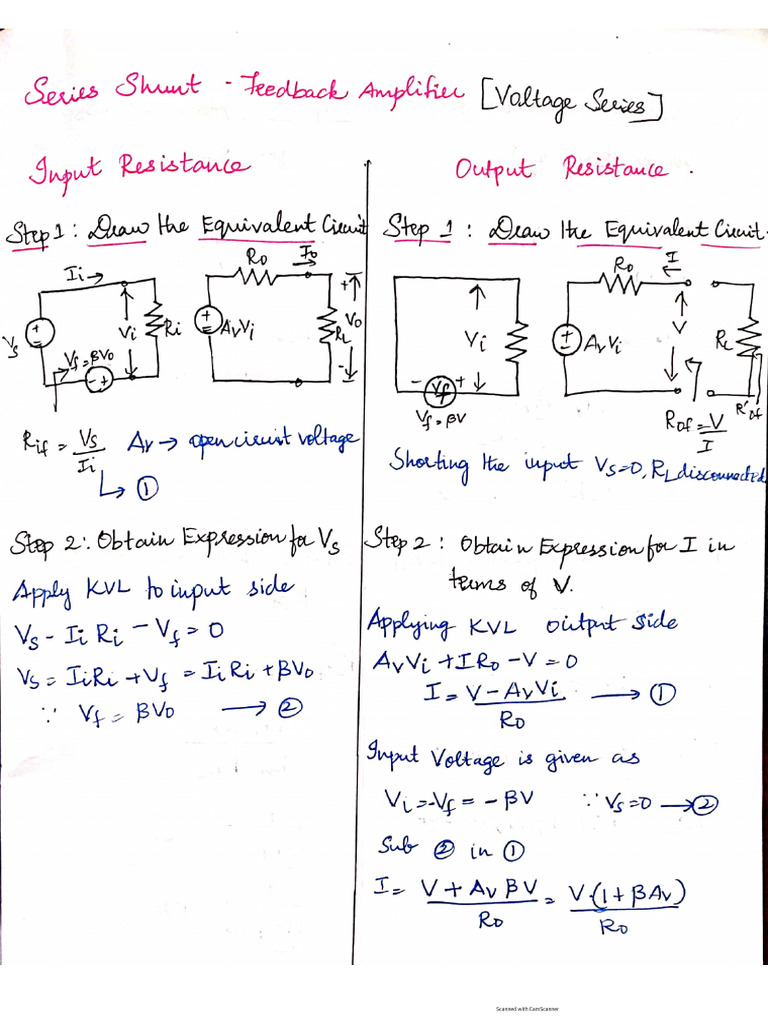 Series Shunt - Feedback Amplifier [Voltage Series]
Input Resistance
Step 1: Draw the Equivalent Circuit
Ii →
Ro
Io
Vs
+
-
Vi
Ri
Vf = βVo
- +
+
-
AvVi
RL
+
Vo
-
Rif = Vs/Ii
Av → open circuit voltage
↳ ①
Step 2: Obtain Expression for Vs
Apply KVL to input side
Vs - Ii Ri - Vf = 0
Vs = IiRi + Vf = IiRi + βVo
∵ Vf = βVo → ②
Output Resistance.
Step 1: Draw the Equivalent Circuit.
Ro
I
Vi
- Vf +
Vf = βV
+
-
AvVi
V
RL
Rof = V/I
R'of
Shorting the input Vs=0, RL disconnected
Step 2: Obtain Expression for I in
terms of V.
Applying KVL output side
AvVi + IRo - V = 0
I = V - AvVi/Ro → ①
Input Voltage is given as
Vi = -Vf = - βV ∵ Vs=0 → ②
Sub ② in ①
I = V + Av βV/Ro = V·(1 + βAv)/Ro
Scanned with CamScanner